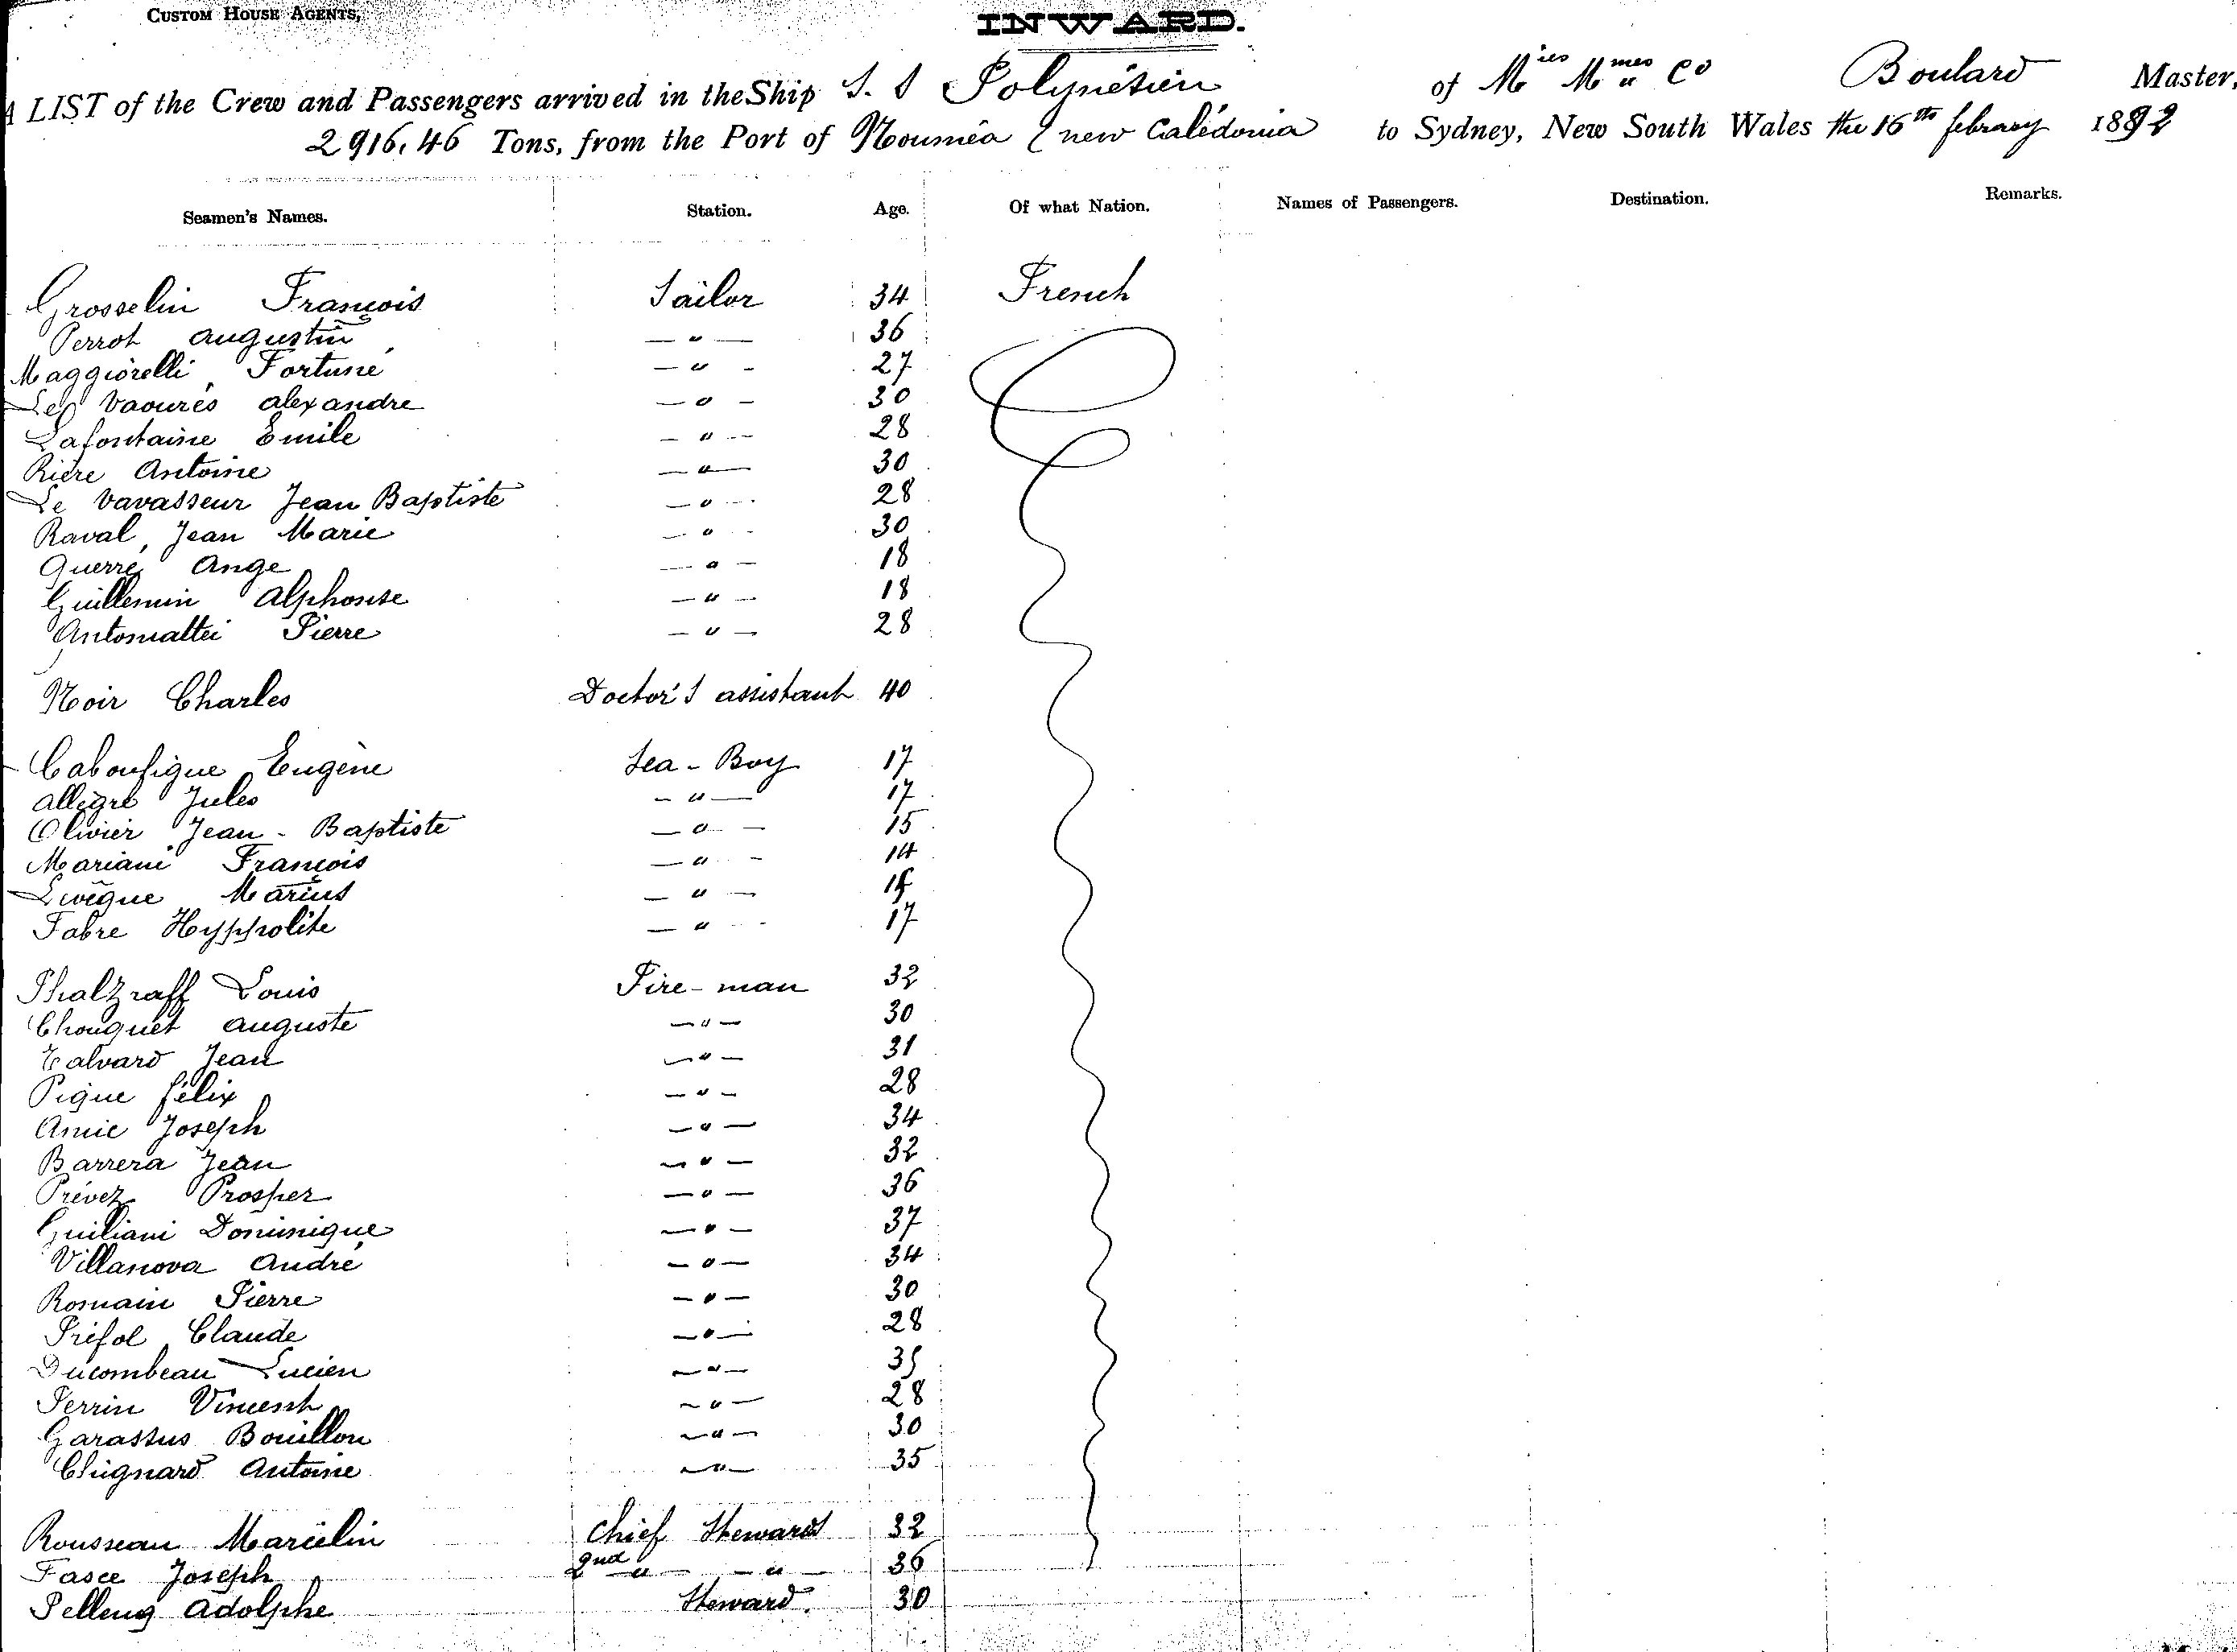 CUSTOM HOUSE AGENTS,
INWARD.
A LIST of the Crew and Passengers arrived in the Ship S. S Polynésien of Mies Mmes Co Boulard Master,
2916,46 Tons, from the Port of Nouméa (new Calédonia to Sydney, New South Wales the 16th febrary 1892
Seamen's Names. Station. Age. Of what Nation. Names of Passengers. Destination. Remarks.
Grosselin François Sailor 34 French
Perrot augustin — " — 36
Maggiorelli Fortuné — " - 27
Vaourès alexandre — " - 30
Lafontaine Emile — " - 28
Rière Antoine — " — 30
Le Vavasseur Jean Baptiste — " - 28
Raval, Jean Marie — " - 30
Querré Ange — " - 18
Guillemin Alphonse — " — 18
Antomattei Pierre — " — 28
Noir Charles Doctor's assistant 40
Caboufigue Eugène Sea-Boy 17
allègre Jules — " — 17
Olivier Jean-Baptiste — " — 15
Mariani François — " - 14
Marius — " —
Fabre Hyppolite — " - 17
Phalzraff Louis Fire-man 32
Chouquet auguste — " — 30
Talvard Jean — " — 31
Pique félix — " — 28
Amic Joseph — " — 34
Barrera Jean — " — 32
Prévez Prosper — " — 36
Guiliani Dominique — " — 37
Villanova André — " — 34
Romain Pierre — " — 30
Préfol Claude — " — 28
Ducombeau Lucien — " — 35
Perrin Vincent — " — 28
Garassus Bouillon — " — 30
Chignard Antoine — " — 35
Rousseau Marcelin Chief Steward 32
Fasce Joseph 2nd " — " — 36
Pelleng adolphe Steward. 30